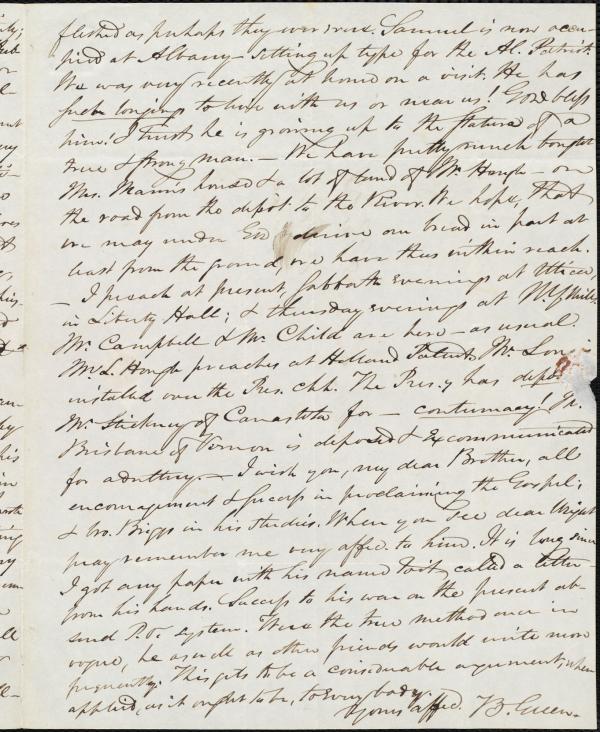 fleshed as perhaps they ever were. Samuel is now occu-
pied at Albany - setting up type for the Al. Patriot.
He was very recently at home on a visit. He has
such longings to live with us or near us! God bless
him! I trust he is growing up to the stature of a
true & strong man. - We have pretty much bought
Mrs. Mann's house & a lot of land of Mr. Hough - on
the road from the depot to the River. We hope, that
we may under God derive our bread in part at
least from the ground, we have thus within reach.
- I preach at present, Sabbath evenings at Utica,
in Liberty Hall; & thursday evenings at N.Y. Mills.
Mr. Campbell & Mr. Child are here - as usual.
Mr. L. Hough preaches at Holland Patent. Mr. Long
installed over the Pres. chh. The Pres.y has depos.
Mr. Stickney of Canastota for - contumacy! Mr.
Brisbane of Vernon is deposed & Excommunicated
for adultery. - I wish you, my dear Brother, all
encouragement & success in proclaiming the Gospel;
& bro. Briggs in his studies. When you see dear Wright
pray remember me very affec. to him. It is long since
I got any paper with his name to it, called a letter -
from his hands. Success to his war on the present ab-
surd P. O. system. Were the true method once in
vogue, he as well as other friends would write more
frequently. This gets to be a considerable argument, when
applied, as it ought to be, to every body.
Yours affec. B. Green.